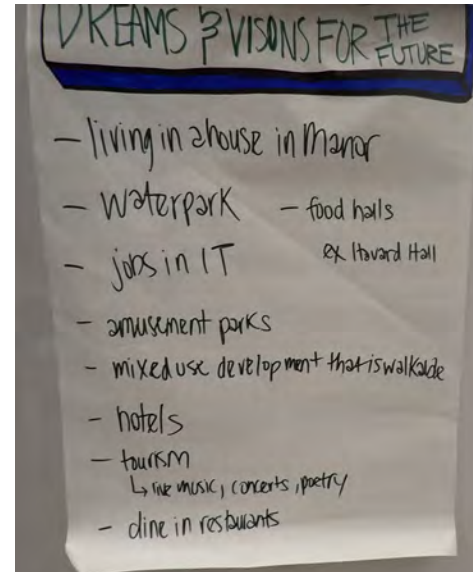 DREAMS & VISONS FOR THE FUTURE
- living in a house in Manor
- waterpark
- food halls
ex Havard Hall
- jobs in IT
- amusement parks
- mixed use development that is walkable
- hotels
- tourism
↳ live music, concerts, poetry
- dine in restaurants